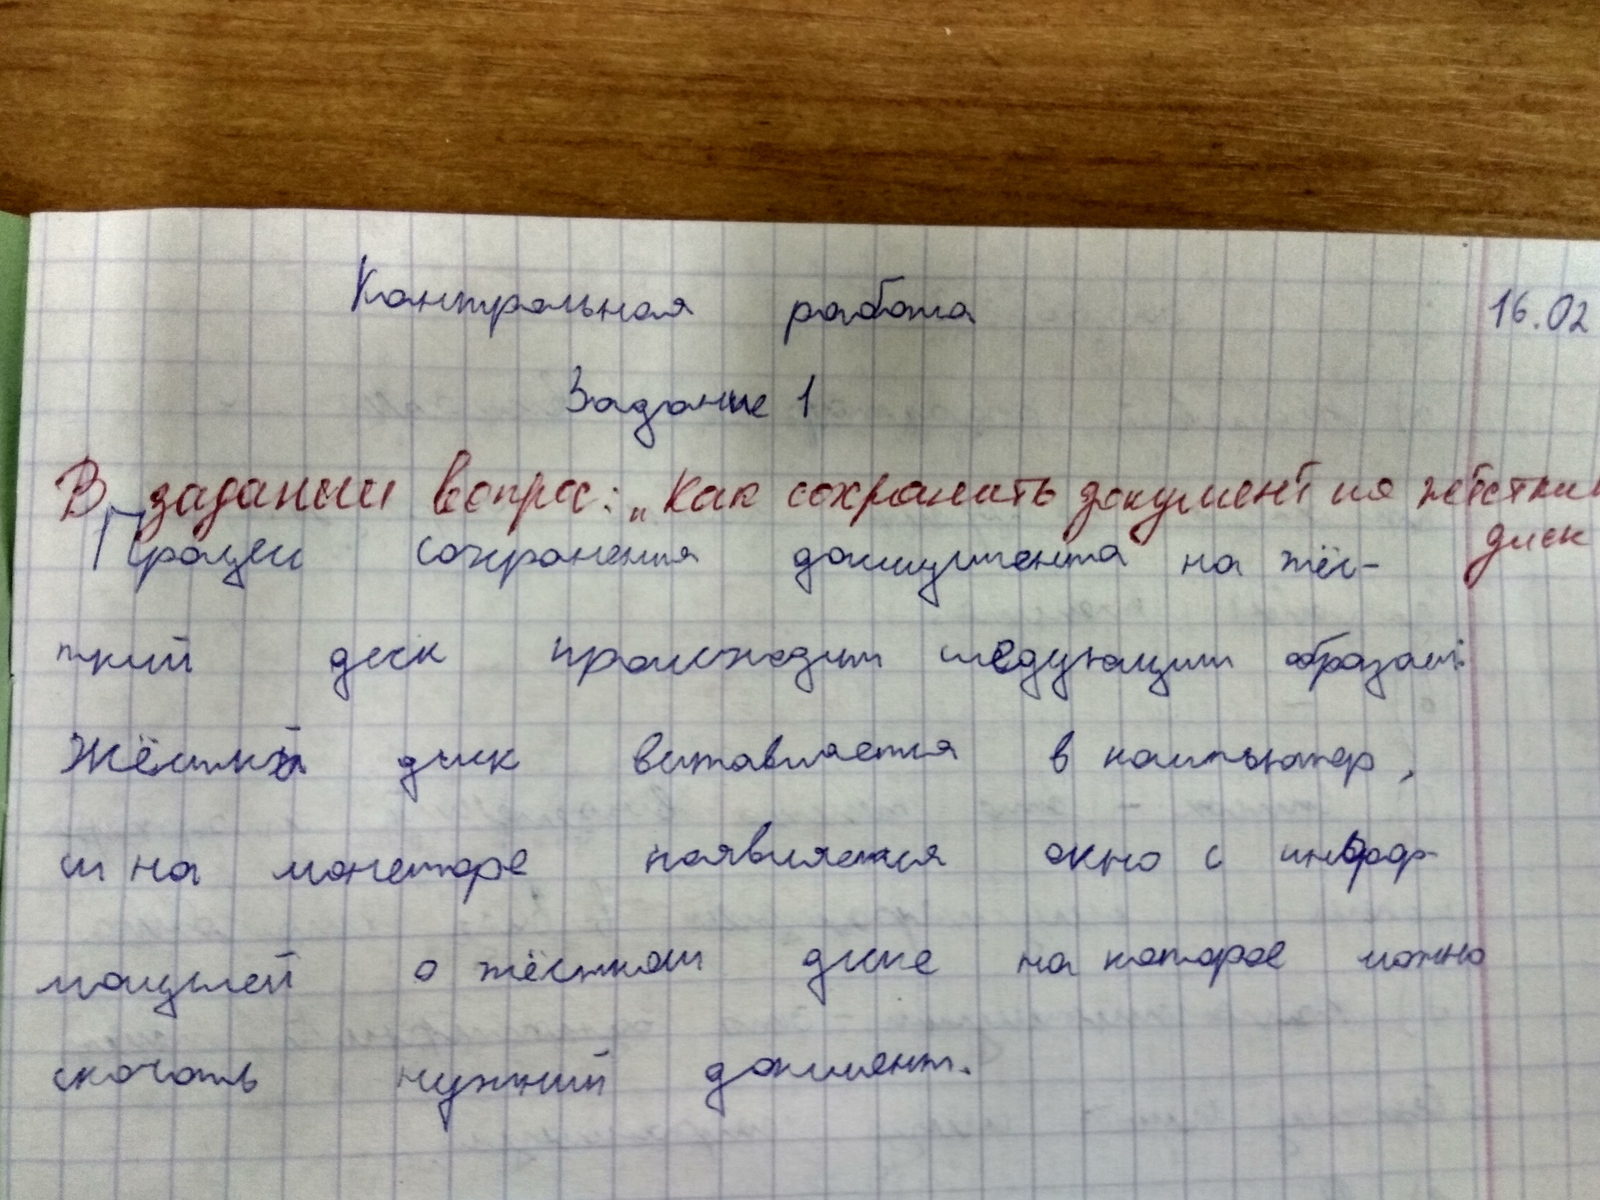 Контрольная работа 16.02
Задание 1
В задании вопрос: „Как сохранить документ на жёсткий
диск
Процес сохранения документа на жёс-
ткий диск происходит следующим образом:
Жёсткий диск вставляется в компьютер,
и на монеторе появляется окно с инфор-
мацией о жёстком диске на которое можно
скачать нужний документ.